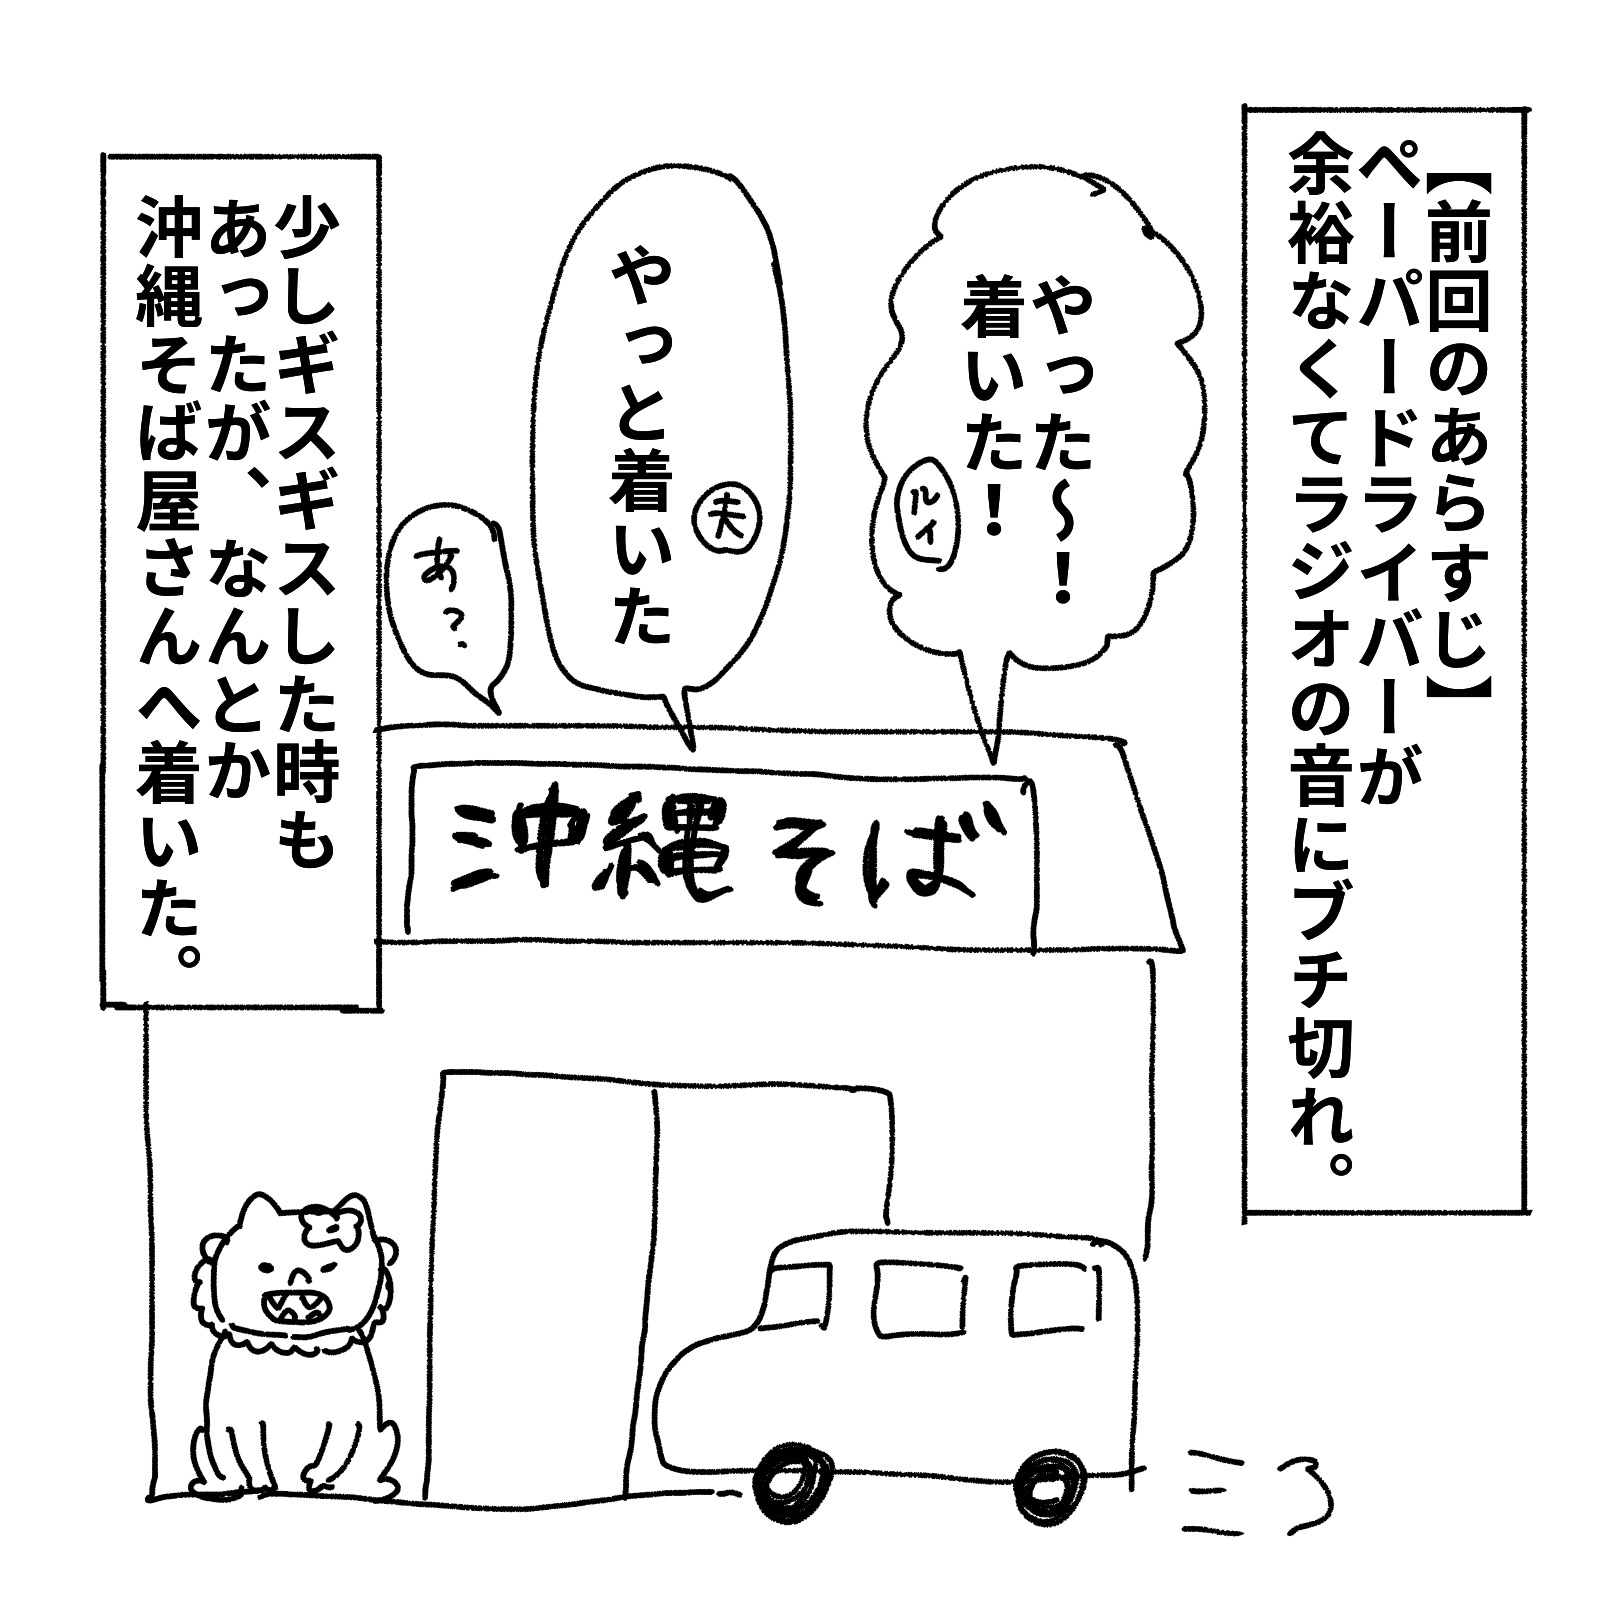 【前回のあらすじ】
ペーパードライバーが
余裕なくてラジオの音にブチ切れ。
やった〜！
着いた！
ルイ
夫
やっと着いた
あ？
沖縄そば
少しギスギスした時も
あったが、なんとか
沖縄そば屋さんへ着いた。